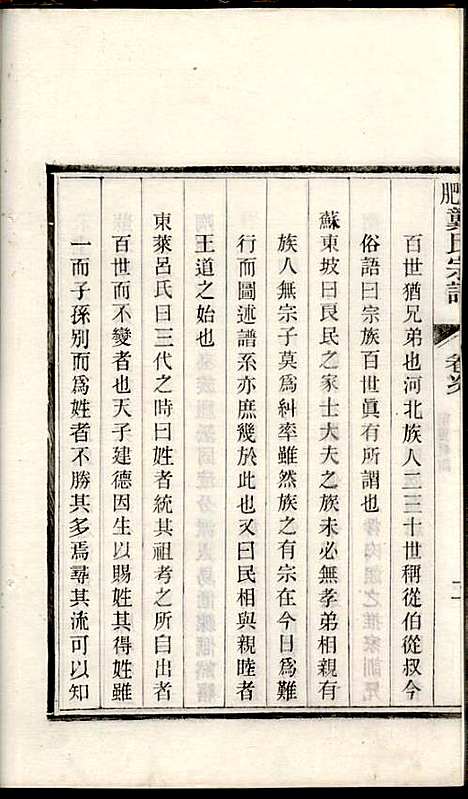 肥龔氏宗譜
百世猶兄弟也河北族人二三十世稱從伯從叔今
俗語曰宗族百世眞有所謂也
蘇東坡曰良民之家士大夫之族未必無孝弟相親有
族人無宗子莫爲糾率雖然族之有宗在今日爲難
行而圖述譜系亦庶幾於此也又曰民相與親睦者
王道之始也
東萊呂氏曰三代之時曰姓者統其祖考之所自出者
百世而不變者也天子建德因生以賜姓其得姓雖
一而子孫別而爲姓者不勝其多焉尋其流可以知